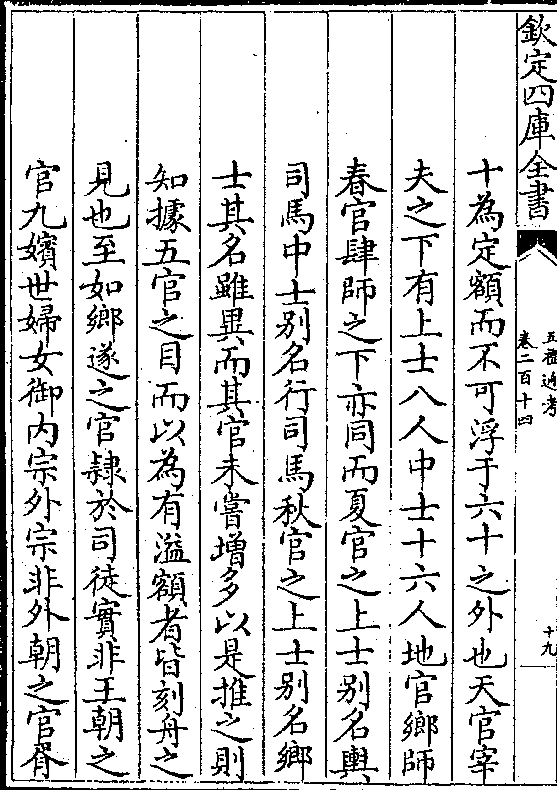 欽定四庫全書
五禮通考
卷二百十四
十九
十為定額而不可浮于六十之外也天官宰
夫之下有上士八人中士十六人地官鄉師
春官肆師之下亦同而夏官之上士别名輿
司馬中士别名行司馬秋官之上士别名鄉
士其名雖異而其官未嘗增多以是推之則
知據五官之目而以為有溢額者皆刻舟之
見也至如鄉遂之官隸於司徒實非王朝之
官九嬪世婦女御内宗外宗非外朝之官胥